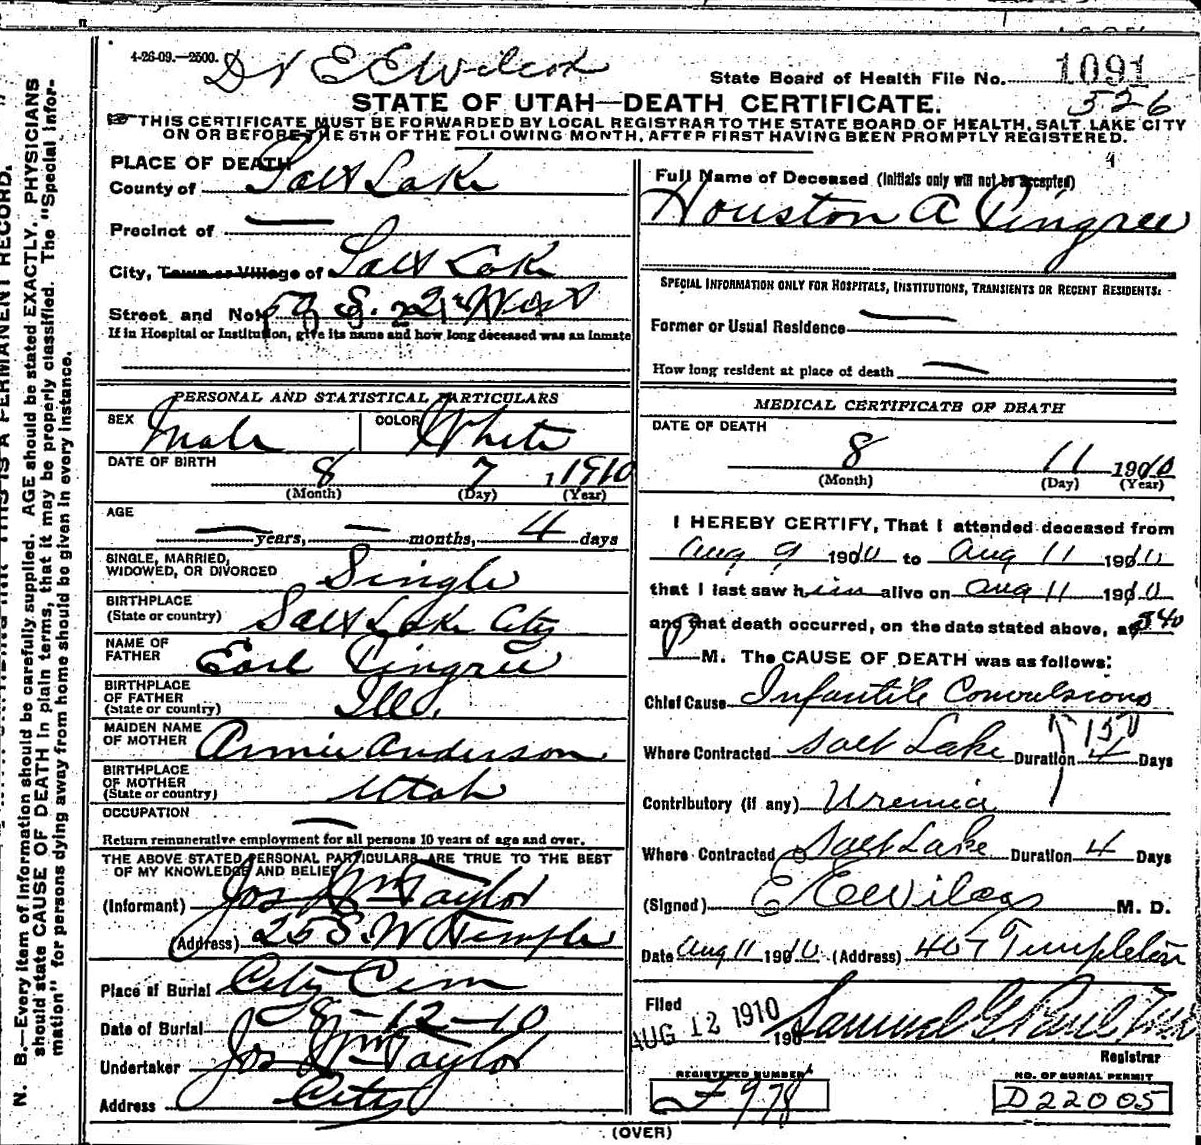 4-26-09.—2500.
Dr E E Wilcox
State Board of Health File No. 1091
526
STATE OF UTAH—DEATH CERTIFICATE.
THIS CERTIFICATE MUST BE FORWARDED BY LOCAL REGISTRAR TO THE STATE BOARD OF HEALTH, SALT LAKE CITY
ON OR BEFORE THE 5TH OF THE FOLLOWING MONTH, AFTER FIRST HAVING BEEN PROMPTLY REGISTERED.
PLACE OF DEATH
County of Salt Lake
Precinct of —
City, Town or Village of Salt Lake
Street and No. 59 S. 2nd West
If in Hospital or Institution, give its name and how long deceased was an inmate
PERSONAL AND STATISTICAL PARTICULARS
SEX Male COLOR White
DATE OF BIRTH 8 7, 1910
(Month) (Day) (Year)
AGE
— years, — months, 4 days
SINGLE, MARRIED,
WIDOWED, OR DIVORCED Single
BIRTHPLACE
(State or country) Salt Lake City
NAME OF
FATHER Earl Pingree
BIRTHPLACE
OF FATHER
(State or country) Ill.
MAIDEN NAME
OF MOTHER Annie Anderson
BIRTHPLACE
OF MOTHER
(State or country) Utah
OCCUPATION —
Return remunerative employment for all persons 10 years of age and over.
THE ABOVE STATED PERSONAL PARTICULARS ARE TRUE TO THE BEST
OF MY KNOWLEDGE AND BELIEF
(Informant) Jos Wm Taylor
(Address) 25 S. W Temple
Place of Burial City Cem
Date of Burial 8-12-10
Undertaker Jos Wm Taylor
Address City
Full Name of Deceased (Initials only will not be accepted)
Houston A Pingree
SPECIAL INFORMATION ONLY FOR HOSPITALS, INSTITUTIONS, TRANSIENTS OR RECENT RESIDENTS:
Former or Usual Residence —
How long resident at place of death —
MEDICAL CERTIFICATE OF DEATH
DATE OF DEATH
8 11 1910
(Month) (Day) (Year)
I HEREBY CERTIFY, That I attended deceased from
Aug 9 1910 to Aug 11 1910
that I last saw him alive on Aug 11 1910
and that death occurred, on the date stated above, at 3.40
P M. The CAUSE OF DEATH was as follows:
Chief Cause Infantile Convulsions
150
Where Contracted Salt Lake Duration 4 Days
Contributory (if any) Uremia
Where Contracted Salt Lake Duration 4 Days
(Signed) E E Wilcox M. D.
Date Aug 11 1910 (Address) 407 Templeton
Filed
AUG 12 1910 190 Samuel G. Paul
Registrar
REGISTERED NUMBER
F 978
NO. OF BURIAL PERMIT
D22005
(OVER)
N. B.—Every item of information should be carefully supplied. AGE should be stated EXACTLY. PHYSICIANS
should state CAUSE OF DEATH in plain terms, that it may be properly classified. The "Special Infor-
mation" for persons dying away from home should be given in every instance.
THIS IS A PERMANENT RECORD.